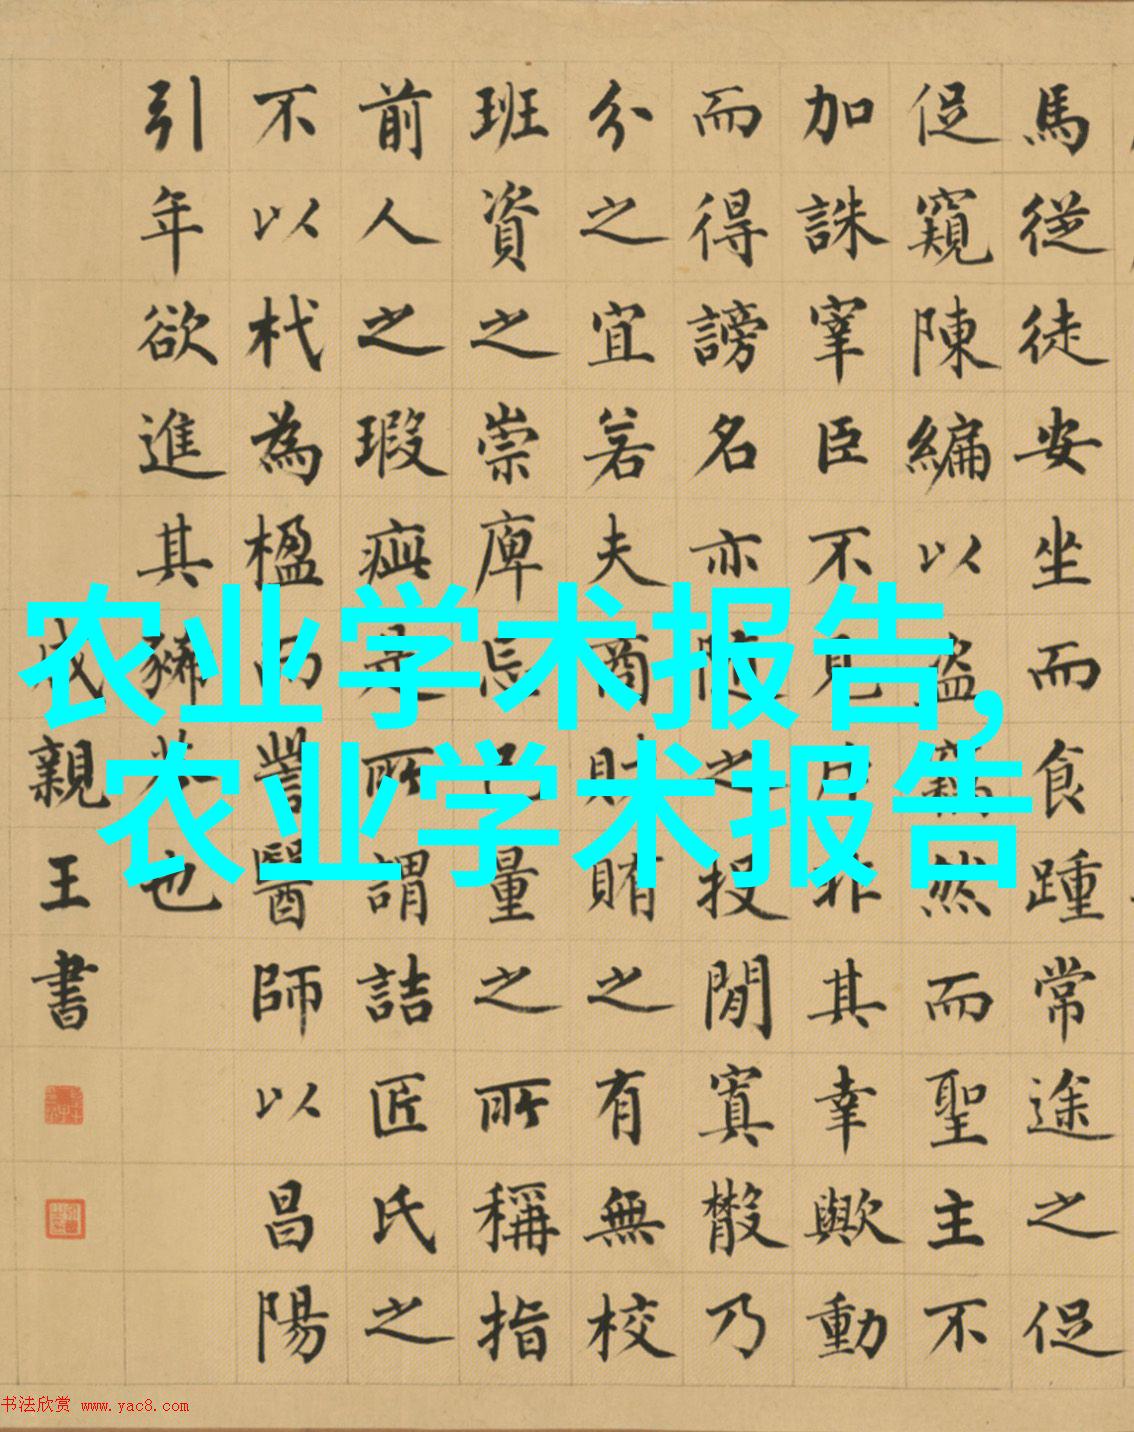 馬從徒安坐而食踵常途之促
促窺陳編以盜竊然而聖主不
加誅宰臣不見斥非其幸歟動
而得謗名亦隨之投閒寘散乃
分之宜若夫商財賄之有無校
班資之崇庳忘己量之所稱指
前人之瑕疵是所謂詰匠氏之
不以杙為楹而訾醫師以昌陽
引年欲進其豨苓也
成親王書
农业学术报告,
农业学术报告
书法欣赏 www.yac8.com